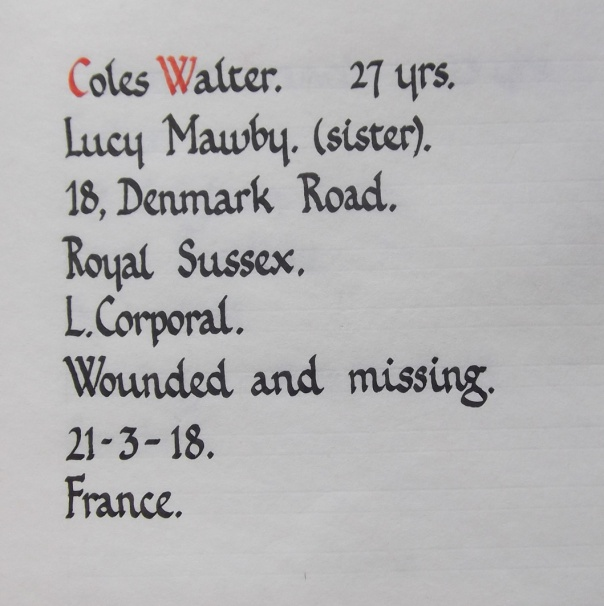 Coles Walter. 27 yrs.
Lucy Mawby. (sister).
18, Denmark Road.
Royal Sussex.
L.Corporal.
Wounded and missing.
21-3-18.
France.